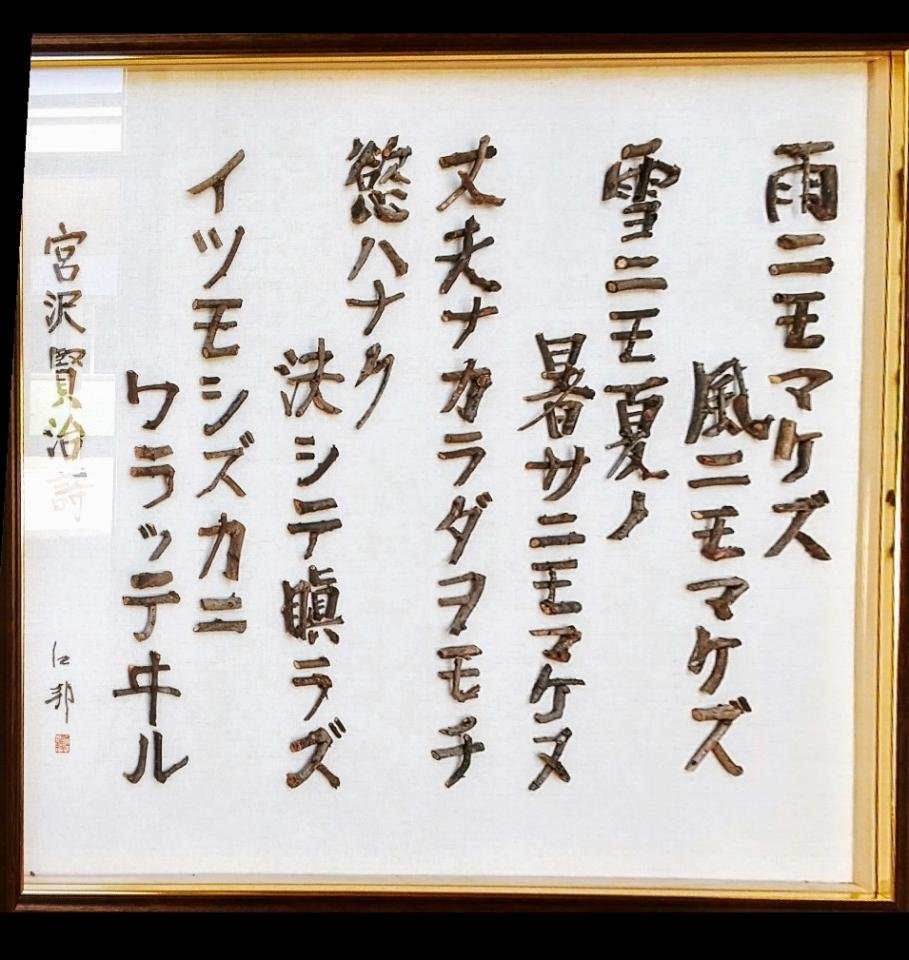 雨ニモマケズ
風ニモマケズ
雪ニモ夏ノ
暑サニモマケヌ
丈夫ナカラダヲモチ
慾ハナク
決シテ瞋ラズ
イツモシズカニ
ワラッテヰル
宮沢賢治詩